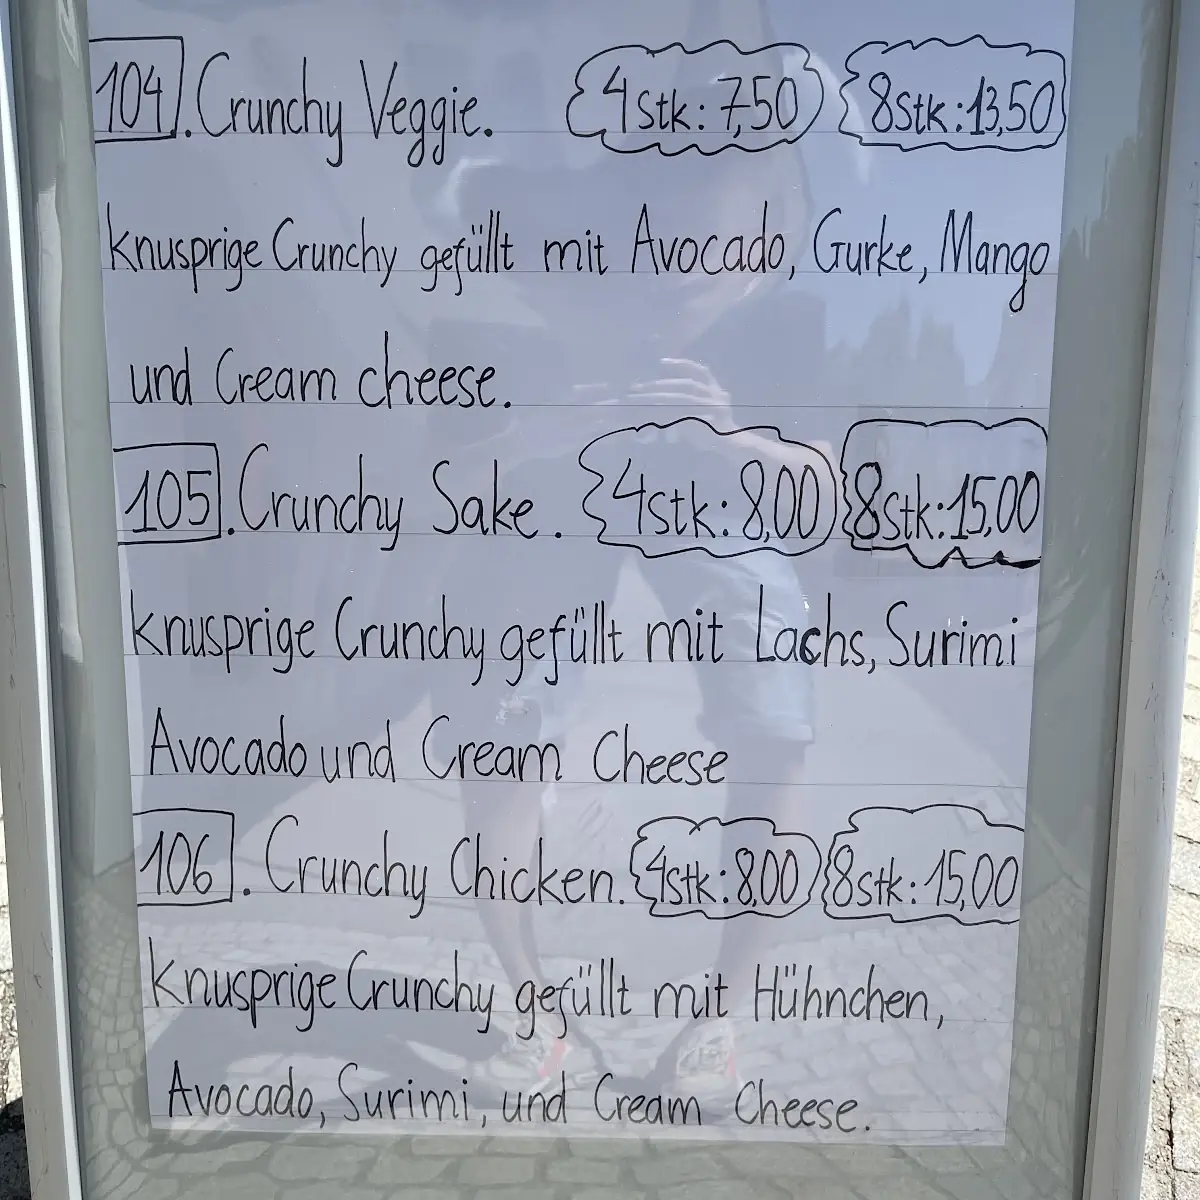 104. Crunchy Veggie. 4 Stk: 7,50 8Stk: 13,50
Knusprige Crunchy gefüllt mit Avocado, Gurke, Mango
und Cream cheese.
105. Crunchy Sake. 4stk: 8,00 8stk: 15,00
Knusprige Crunchy gefüllt mit Lachs, Surimi
Avocado und Cream Cheese
106. Crunchy Chicken. 4stk: 8,00 8stk: 15,00
Knusprige Crunchy gefüllt mit Hühnchen,
Avocado, Surimi, und Cream Cheese.